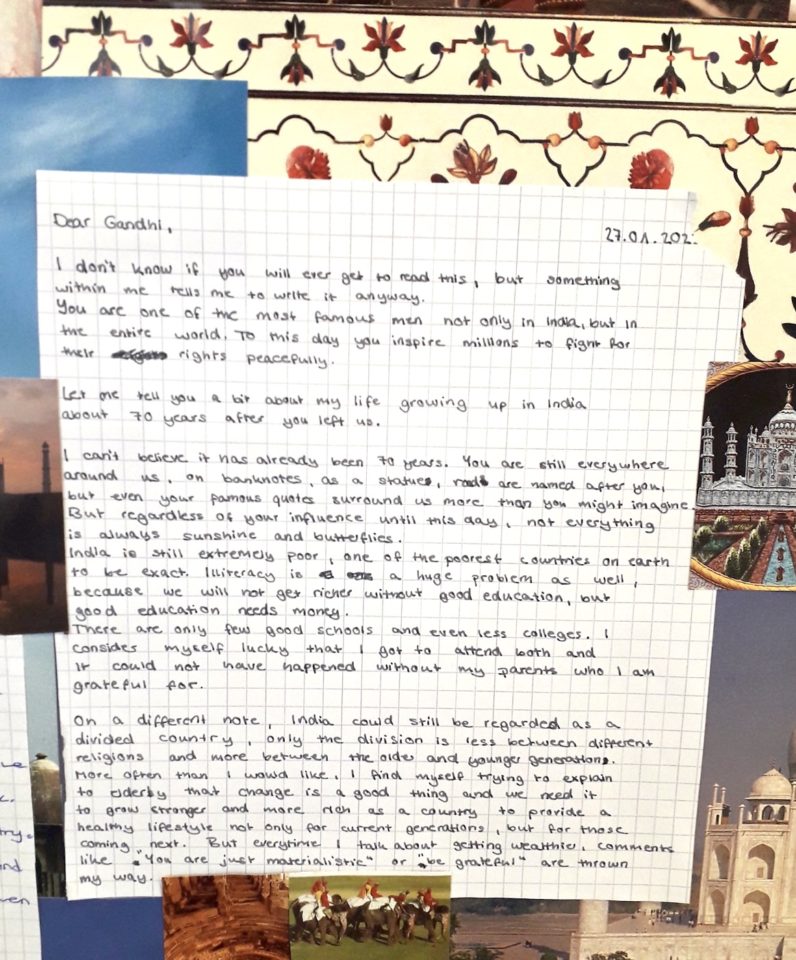 Dear Gandhi,
27.01.202
I don't know if you will ever get to read this, but something
within me tells me to write it anyway.
You are one of the most famous men not only in India, but in
the entire world. To this day you inspire millions to fight for
their rights peacefully.
Let me tell you a bit about my life growing up in India
about 70 years after you left us.
I can't believe it has already been 70 years. You are still everywhere
around us, on banknotes, as a statues, roads are named after you,
but even your famous quotes surround us more than you might imagine.
But regardless of your influence until this day, not everything
is always sunshine and butterflies.
India is still extremely poor, one of the poorest countries on earth
to be exact. Illiteracy is a huge problem as well,
because we will not get richer without good education, but
good education needs money.
There are only few good schools and even less colleges. I
consider myself lucky that I got to attend both and
it could not have happened without my parents who I am
grateful for.
On a different note, India could still be regarded as a
divided country, only the division is less between different
religions and more between the older and younger generations.
More often than I would like, I find myself trying to explain
to elderly that change is a good thing and we need it
to grow stronger and more rich as a country to provide a
healthy lifestyle not only for current generations, but for those
coming next. But everytime I talk about getting wealthier, comments
like "You are just materialistic" or "be grateful" are thrown
my way.